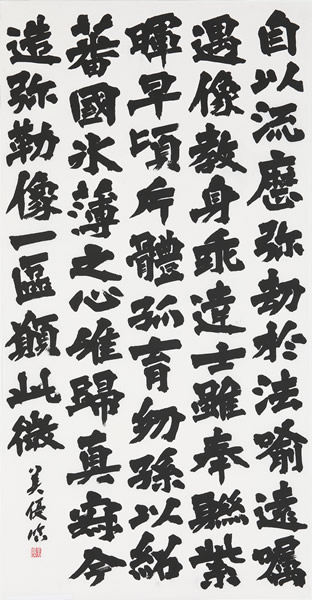 自以流歷弥劫於法喻遠囑
遇像教身乖達士雖奉聯紫
暉早頃片體孤育幼孫以紹
蕃國氷薄之心唯歸真寂今
造弥勒像一區願此微